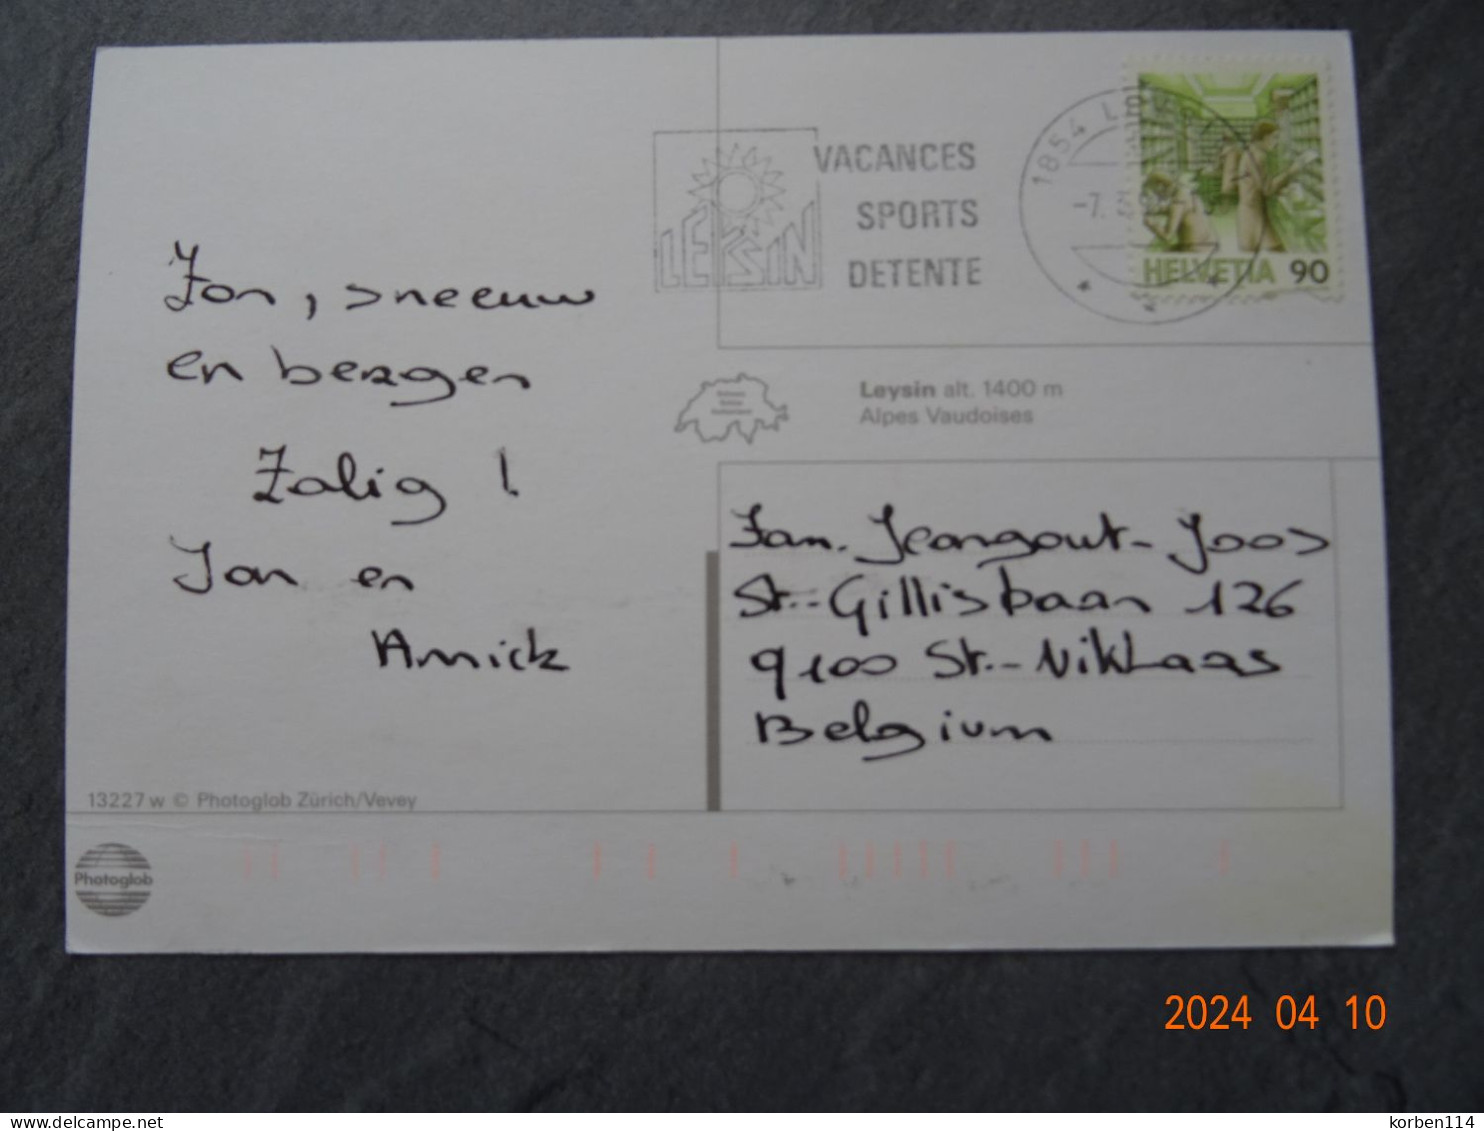 VACANCES
SPORTS
DETENTE
LEYSIN
1854
HELVETIA 90
Zon, sneeuw
en bergen
Zalig !
Jan en
Annick
Leysin alt. 1400 m
Alpes Vaudoises
Fam. Jeangout-Joos
St.-Gillisbaan 126
9100 St.-Niklaas
Belgium
13227 w © Photoglob Zürich/Vevey
Photoglob
2024 04 10
delcampe.net
korben114